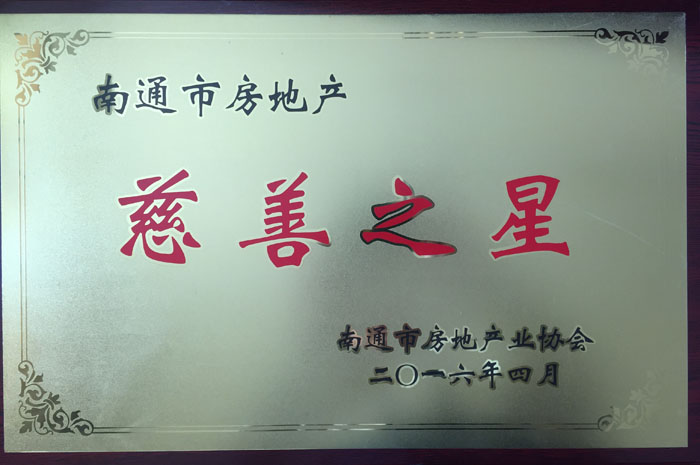 南通市房地产
慈善之星
南通市房地产业协会
二〇一六年四月